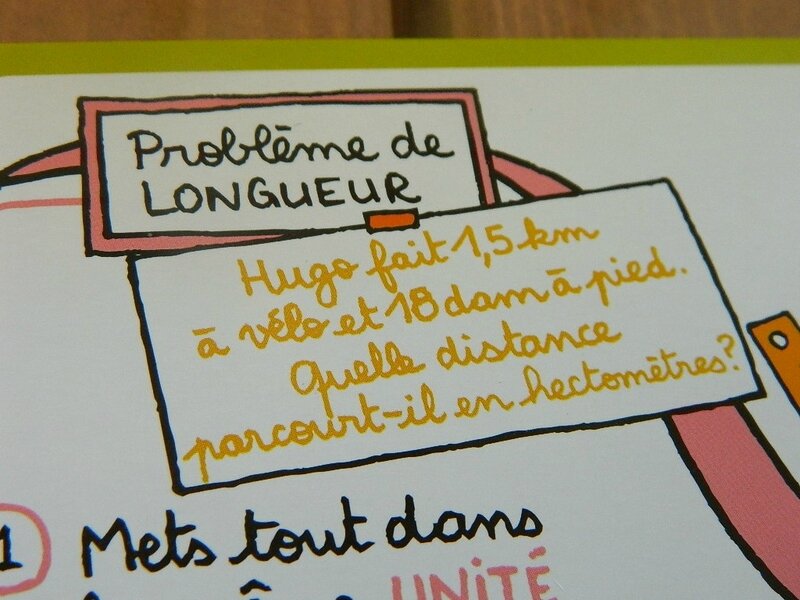 Problème de
LONGUEUR
Hugo fait 1,5 km
à vélo et 18 dam à pied.
Quelle distance
parcourt-il en hectomètres?
1 Mets tout dans
UNITÉ